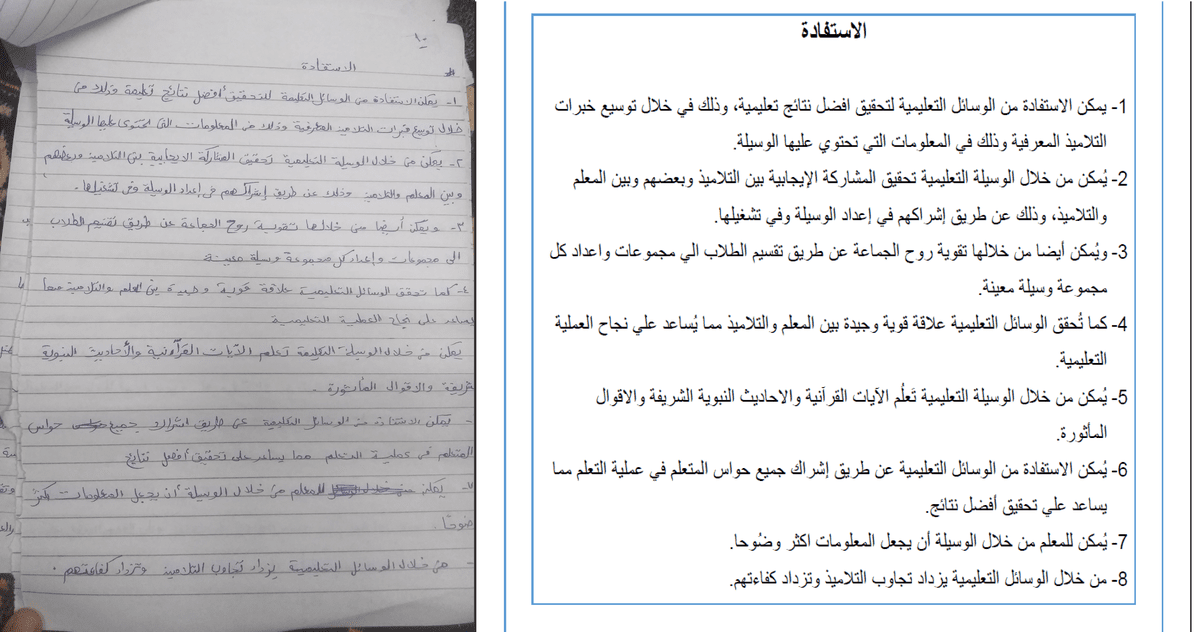 الاستفادة
1- يمكن الاستفادة من الوسائل التعليمية لتحقيق افضل نتائج تعليمية، وذلك في خلال توسيع خبرات
التلاميذ المعرفية وذلك في المعلومات التي تحتوي عليها الوسيلة.
2- يُمكن من خلال الوسيلة التعليمية تحقيق المشاركة الإيجابية بين التلاميذ وبعضهم وبين المعلم
والتلاميذ، وذلك عن طريق إشراكهم في إعداد الوسيلة وفي تشغيلها.
3- ويُمكن أيضا من خلالها تقوية روح الجماعة عن طريق تقسيم الطلاب الي مجموعات واعداد كل
مجموعة وسيلة معينة.
4- كما تُحقق الوسائل التعليمية علاقة قوية وجيدة بين المعلم والتلاميذ مما يُساعد علي نجاح العملية
التعليمية.
5- يُمكن من خلال الوسيلة التعليمية تَعلُم الآيات القرآنية والاحاديث النبوية الشريفة والاقوال
المأثورة.
6- يُمكن الاستفادة من الوسائل التعليمية عن طريق إشراك جميع حواس المتعلم في عملية التعلم مما
يساعد علي تحقيق أفضل نتائج.
7- يُمكن للمعلم من خلال الوسيلة أن يجعل المعلومات اكثر وضُوحا.
8- من خلال الوسائل التعليمية يزداد تجاوب التلاميذ وتزداد كفاءتهم.
١٠
الاستفادة
١- يمكن الاستفادة من الوسائل التعليمة للتحقيق أفضل نتائج تعليمة وذلك من
خلال توسيع خبرات التلاميذ المعرفية وذلك من المعلومات التى تحتوى عليها الوسيلة
٢- يمكن من خلال الوسيلة التعليمية تحقيق المشاركة الايجابية بين التلاميذ وبعضهم
وبين المعلم والتلاميذ وذلك عن طريق إشراكهم فى إعداد الوسيلة وفى تشغيلها.
٣- ويمكن أيضا من خلالها تقوية روح الجماعة عن طريق تقسيم الطلاب
الى مجموعات وإعداد كل مجموعة وسيلة معينة
٤- كما تحقق الوسائل التعليمية علاقة قوية وجيدة بين المعلم والتلاميذ مما
يساعد على نجاح العملية التعليمية
يمكن من خلال الوسيلة التعليمة تعلم الآيات القرآنية والأحاديث النبوية
شريفة والاقوال المأثورة.
- يمكن الاستفادة من الوسائل التعليمة عن طريق اشراك جميع حواس
المتعلم فى عملية التعلم مما يساعد على تحقيق أفضل نتائج
٧- يمكن للمعلم من خلال الوسيلة أن يجعل المعلومات كثر
ضوحًا.
- من خلال الوسائل التعليمية يزداد تجاوب التلاميذ وتزداد كفاءتهم.